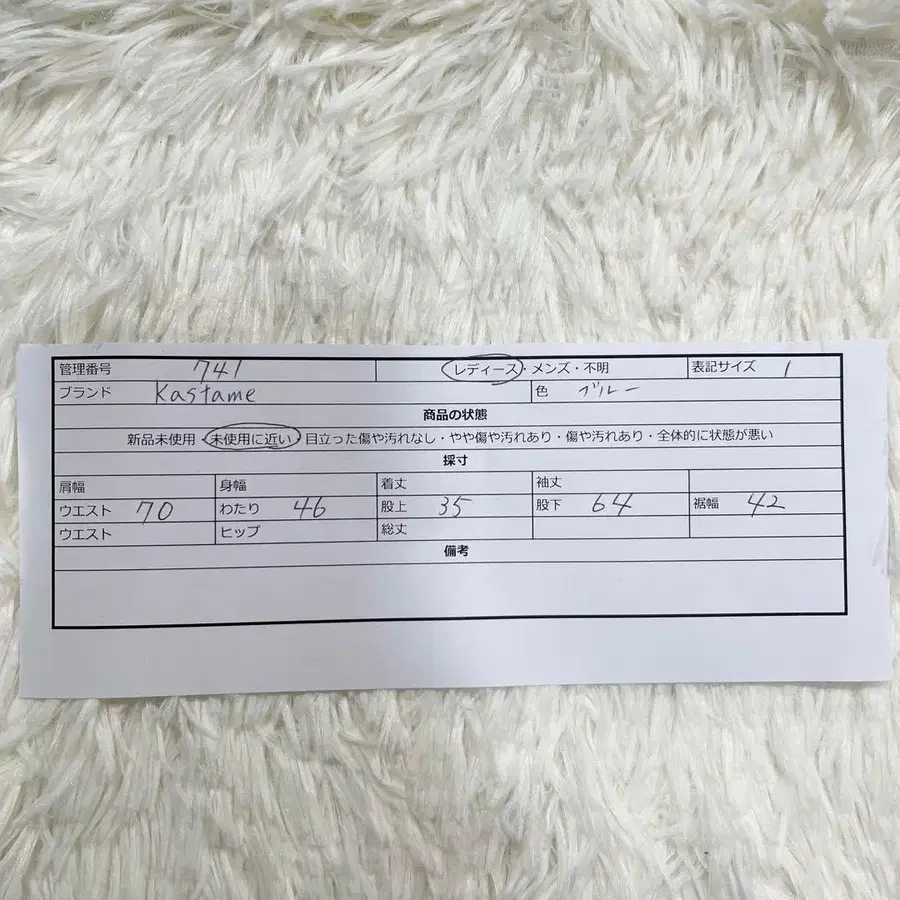 管理番号 741 レディース・メンズ・不明 表記サイズ 1
ブランド Kastame 色 ブルー
商品の状態
新品未使用・未使用に近い・目立った傷や汚れなし・やや傷や汚れあり・傷や汚れあり・全体的に状態が悪い
採寸
肩幅 身幅 着丈 袖丈
ウエスト 70 わたり 46 股上 35 股下 64 裾幅 42
ウエスト ヒップ 総丈
備考